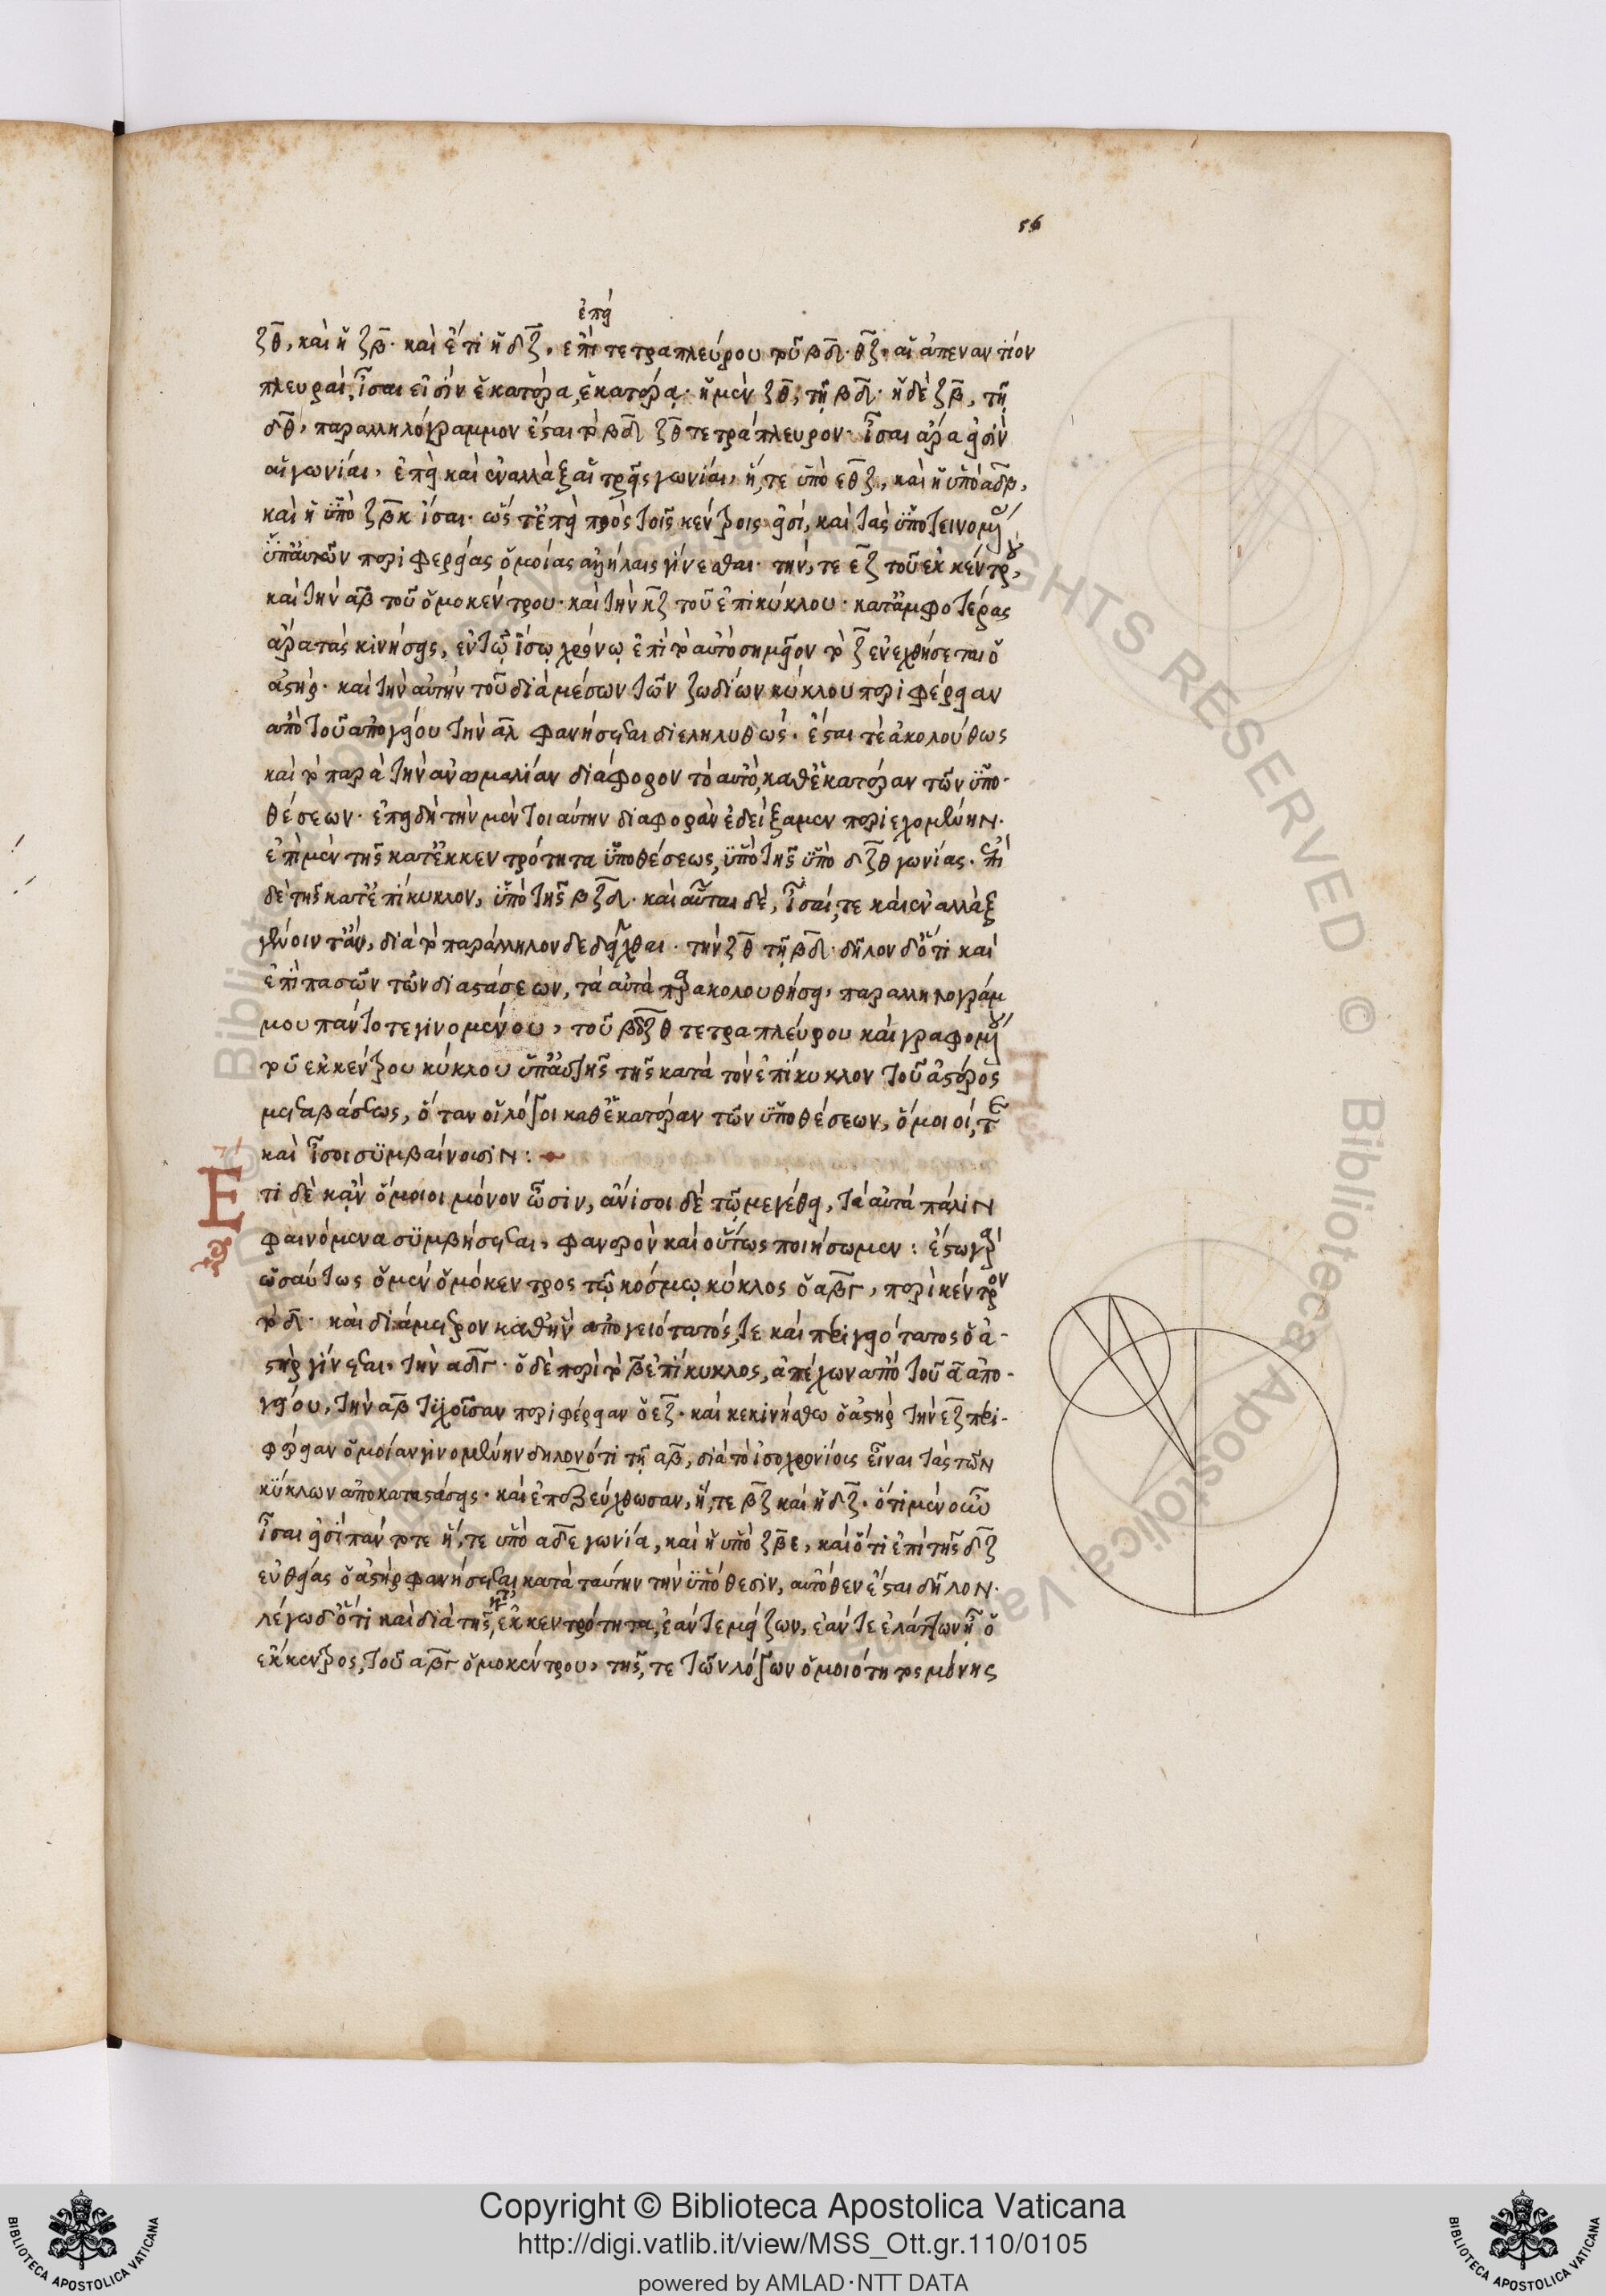 56
ἐπεὶ
ζθ, καὶ ἡ ζβ· καὶ ἔτι ἡ δζ, ἐπὶ τετραπλεύρου τοῦ βδ·θζ, αἱ ἀπεναντίον
πλευραὶ, ἴσαι εἰσὶν ἑκατέρα, ἑκατέρᾳ· ἡ μὲν ζθ, τῇ βδ· ἡ δὲ ζβ, τῇ
δθ, παραλληλόγραμμον ἔσται τὸ βδ ζθ τετράπλευρον· ἴσαι ἄρα εἰσὶν
αἱ γωνίαι, ἐπεὶ καὶ ἐναλλὰξ αἱ τρεῖς γωνίαι, ἥ, τε ὑπὸ εθζ, καὶ ἡ ὑπὸ αδβ,
καὶ ἡ ὑπὸ ζβκ ἴσαι· ὥς τ' ἐπεὶ πρὸς τοῖς κέντροις εἰσί, καὶ τὰς ὑποτεινομένας
ὑπ' αὐτῶν περιφερείας ὁμοίας ἀλλήλαις γίνεσθαι· τήν, τε εζ τοῦ ἐκκέντρου,
καὶ τὴν αβ τοῦ ὁμοκέντρου· καὶ τὴν κζ τοῦ ἐπικύκλου· κατ' ἀμφοτέρας
ἄρα τὰς κινήσεις, ἐν τῷ ἴσῳ χρόνῳ ἐπὶ τὸ αὐτὸ σημεῖον τὸ ζ ἐνεχθήσεται ὁ
ἀστήρ· καὶ τὴν αὐτὴν τοῦ διὰ μέσων τῶν ζωδίων κύκλου περιφέρειαν
ἀπὸ τοῦ ἀπογείου τὴν αλ φανήσεται διεληλυθώς· ἔσται τὲ ἀκολούθως
καὶ τὸ παρὰ τὴν ἀνωμαλίαν διάφορον τὸ αὐτὸ, καθ' ἑκατέραν τῶν ὑπο·
θέσεων· ἐπειδὴ τὴν μὲν τοιαύτην διαφορὰν ἐδείξαμεν περιεχομένην·
ἐπὶ μὲν τῆς κατ' ἐκκεντρότητα ὑποθέσεως, ὑπὸ τῆς ὑπὸ δζθ γωνίας· ἐπὶ
δὲ τῆς κατ' ἐπίκυκλον, ὑπὸ τῆς βζδ· καὶ αὗται δὲ, ἴσαί, τε καὶ ἐναλλὰξ
γένοιντ' ἂν, διὰ τὸ παράλληλον δεδεῖχθαι· τὴν ζθ τῇ βδ· δῆλον δ' ὅτι καὶ
ἐπὶ πασῶν τῶν διαστάσεων, τὰ αὐτὰ παρακολουθήσει, παραλληλογράμ
μου πάντοτε γινομένου, τοῦ βδζθ τετραπλεύρου καὶ γραφομένου
τοῦ ἐκκέντρου κύκλου ὑπ' αὐτῆς τῆς κατὰ τὸν ἐπίκυκλον τοῦ ἀστέρος
μεταβάσεως, ὅταν οἱ λόγοι καθ' ἑκατέραν τῶν ὑποθέσεων, ὅμοιοί, τε
καὶ ἴσοι συμβαίνωσιν:
Ἔτι δὲ κἂν ὅμοιοι μόνον ὦσιν, ἄνισοι δὲ τῷ μεγέθει, τὰ αὐτὰ πάλιν
φαινόμενα συμβήσεται, φανερὸν καὶ οὕτως ποιήσωμεν: ἔστω γὰρ
ὡσαύτως ὁ μὲν ὁμόκεντρος τῷ κόσμῳ κύκλος ὁ αβγ, περὶ κέντρον
τὸ δ· καὶ διάμετρον καθ' ἣν ἀπογειότατός, τε καὶ περιγειότατος ὁ ἀ-
στὴρ γίνεται, τὴν αδγ· ὁ δὲ περὶ τὸ β ἐπίκυκλος, ἀπέχων ἀπὸ τοῦ α ἀπο-
γείου, τὴν αβ τυχοῦσαν περιφέρειαν ὁ εζ· καὶ κεκινήσθω ὁ ἀστὴρ τὴν εζ περι-
φέρειαν ὁμοίαν γινομένην δηλονότι τῇ αβ, διὰ τὸ ἰσοχρονίους εἶναι τὰς τῶν
κύκλων ἀποκαταστάσεις· καὶ ἐπεζεύχθωσαν, ἥ, τε βζ καὶ ἡ δζ· ὅτι μὲν οὖν
ἴσαι εἰσὶ πάντοτε ἥ, τε ὑπὸ αδε γωνία, καὶ ἡ ὑπὸ ζβε, καὶ ὅτι ἐπὶ τῆς δζ
εὐθείας ὁ ἀστὴρ φανήσεται κατὰ ταύτην τὴν ὑπόθεσιν, αὐτόθεν ἔσται δῆλον·
λέγω δ' ὅτι καὶ διὰ τῆς, κατ' ἐκκεντρότητα, ἐάν τε μείζων, ἐάν τε ἐλάττων ᾖ ὁ
ἔκκεντρος, τοῦ αβγ ὁμοκέντρου, τῆς, τε τῶν λόγων ὁμοιότητος μόνης
Copyright © Biblioteca Apostolica Vaticana
http://digi.vatlib.it/view/MSS_Ott.gr.110/0105
powered by AMLAD·NTT DATA